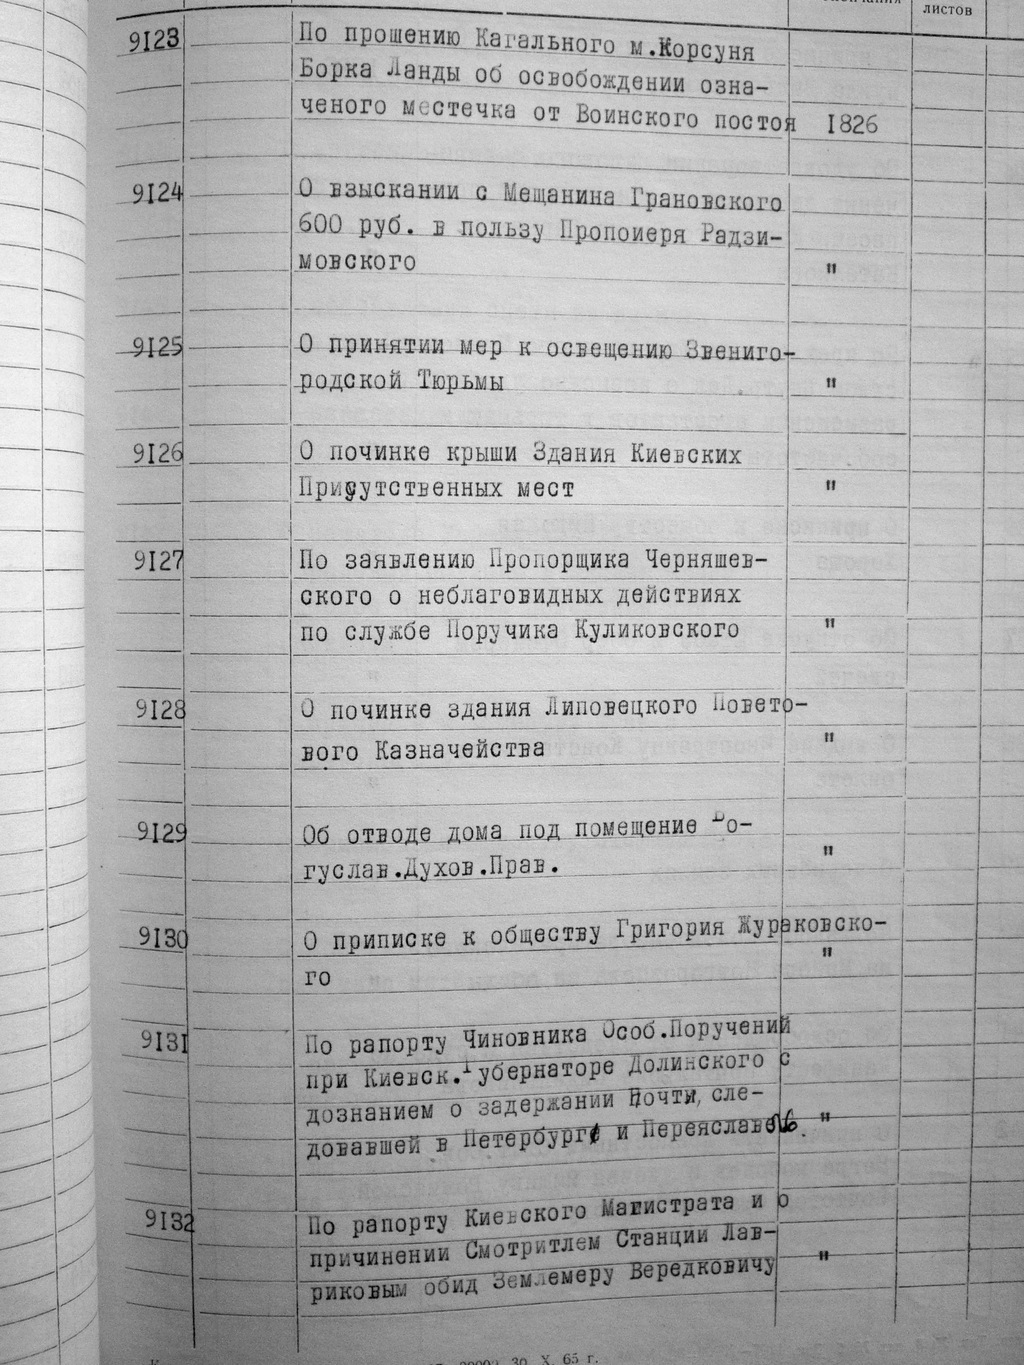 листов
9I23 По прошению Кагального м.Корсуня
Борка Ланды об освобождении озна-
ченого местечка от Воинского постоя I826
9I24 О взыскании с Мещанина Грановского
600 руб. в пользу Пропоиеря Радзи-
мовского "
9I25 О принятии мер к освещению Звениго-
родской Тюрьмы "
9I26 О починке крыши Здания Киевских
Присутственных мест "
9I27 По заявлению Пропорщика Черняшев-
ского о неблаговидных действиях
по службе Поручика Куликовского "
9I28 О починке здания Липовецкого Повето-
вого Казначейства "
9I29 Об отводе дома под помещение Бо-
гуслав.Духов.Прав. "
9I30 О приписке к обществу Григория Жураковско-
го "
9I3I По рапорту Чиновника Особ.Поручений
при Киевск.Губернаторе Долинского с
дознанием о задержании Почти, сле-
довавшей в Петербург и Переяславль. "
9I32 По рапорту Киевского Магистрата и о
причинении Смотритлем Станции Лав-
риковым обид Землемеру Вередковичу "
30. X. 65 г.